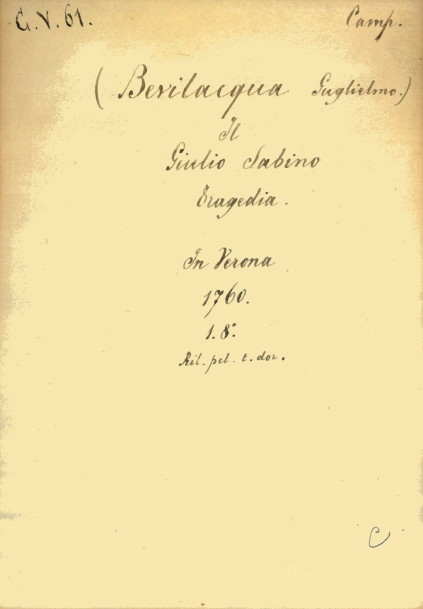 G. V. 61. Camp.
(Bevilacqua Guglielmo.)
Il
Giulio Sabino
Tragedia.
In Verona
1760.
1. 8°.
Ril. pel. t. dor.
C